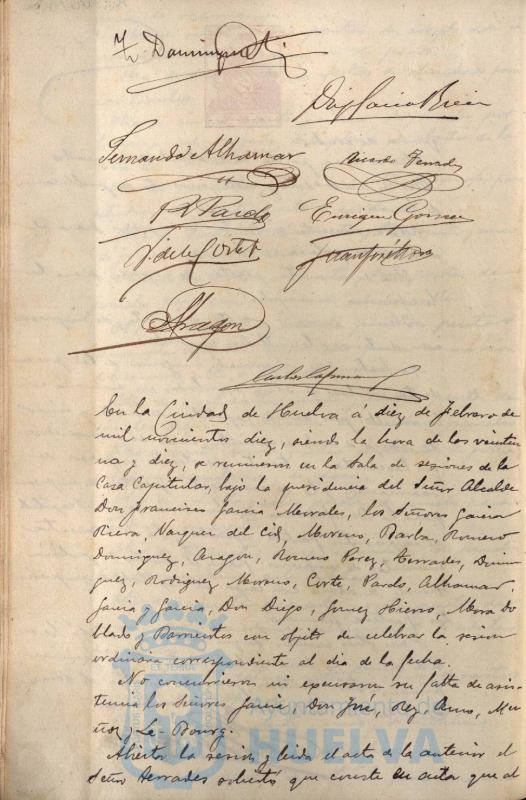 Fr. Dominguez
Fernando Alhamar
R. Pardo
Enrique Gomez
V. de la Corte
Aragon
En la Ciudad de Huelva á diez de Febrero de
mil novecientos diez, siendo la hora de las veintiu
na y diez, se reunieron en la Sala de sesiones de la
Casa Capitular, bajo la presidencia del Señor Alcalde
Don Francisco Garcia Morales, los Señores Garcia
Riera, Vazquez del Cid, Moreno, Barba, Romero
Dominguez, Aragon, Romero Perez, Terrades, Domin
guez, Rodriguez Moreno, Corte, Pardo, Alhamar,
Garcia y Garcia, Don Diego, Gomez Hierro, Mora Do
blado y Barrientos con objeto de celebrar la sesion
ordinaria correspondiente al dia de la fecha.
No concurrieron ni excusaron su falta de asis-
tencia los Señores Garcia, Don José, Rey, Muñoz, Le-Bourg.
Abierta la sesion y leida el acta de la anterior el
Señor Terrades solicitó que conste en acta que el
Ayuntamiento de
HUELVA